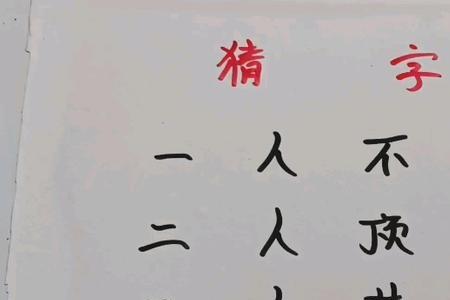 猜 字
一 人 不
二 人 顶